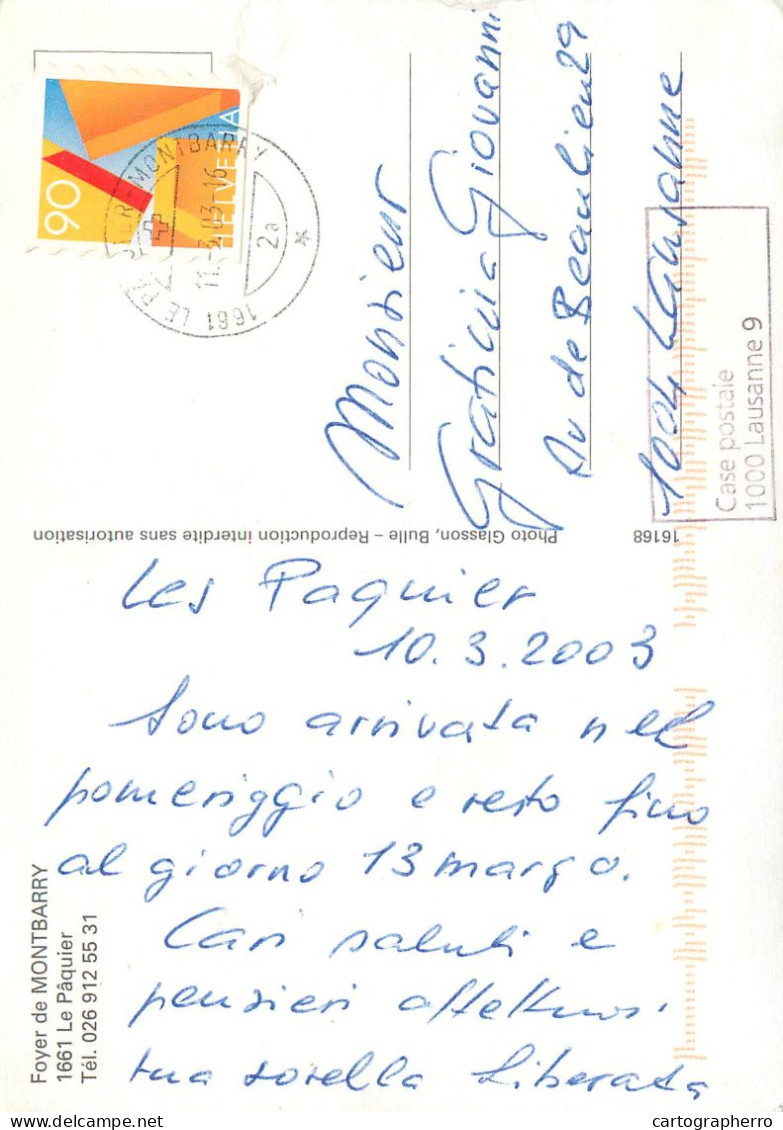 Les Paquier
10.3.2003
Sono arrivata nel
pomeriggio e resto fino
al giorno 13 marzo.
Cari saluti e
pensieri affettuosi
tua sorella Liberata
Foyer de MONTBARRY
1661 Le Pâquier
Tél. 026 912 55 31
Photo Glasson, Bulle – Reproduction interdite sans autorisation
16168
Monsieur
Giovanni
Av de Beaulieu 29
1004 Lausanne
Case postale
1000 Lausanne 9
90
HELVETIA
MONTBARRY
11.-3.03-16
2a
1661 LE
cartographerro